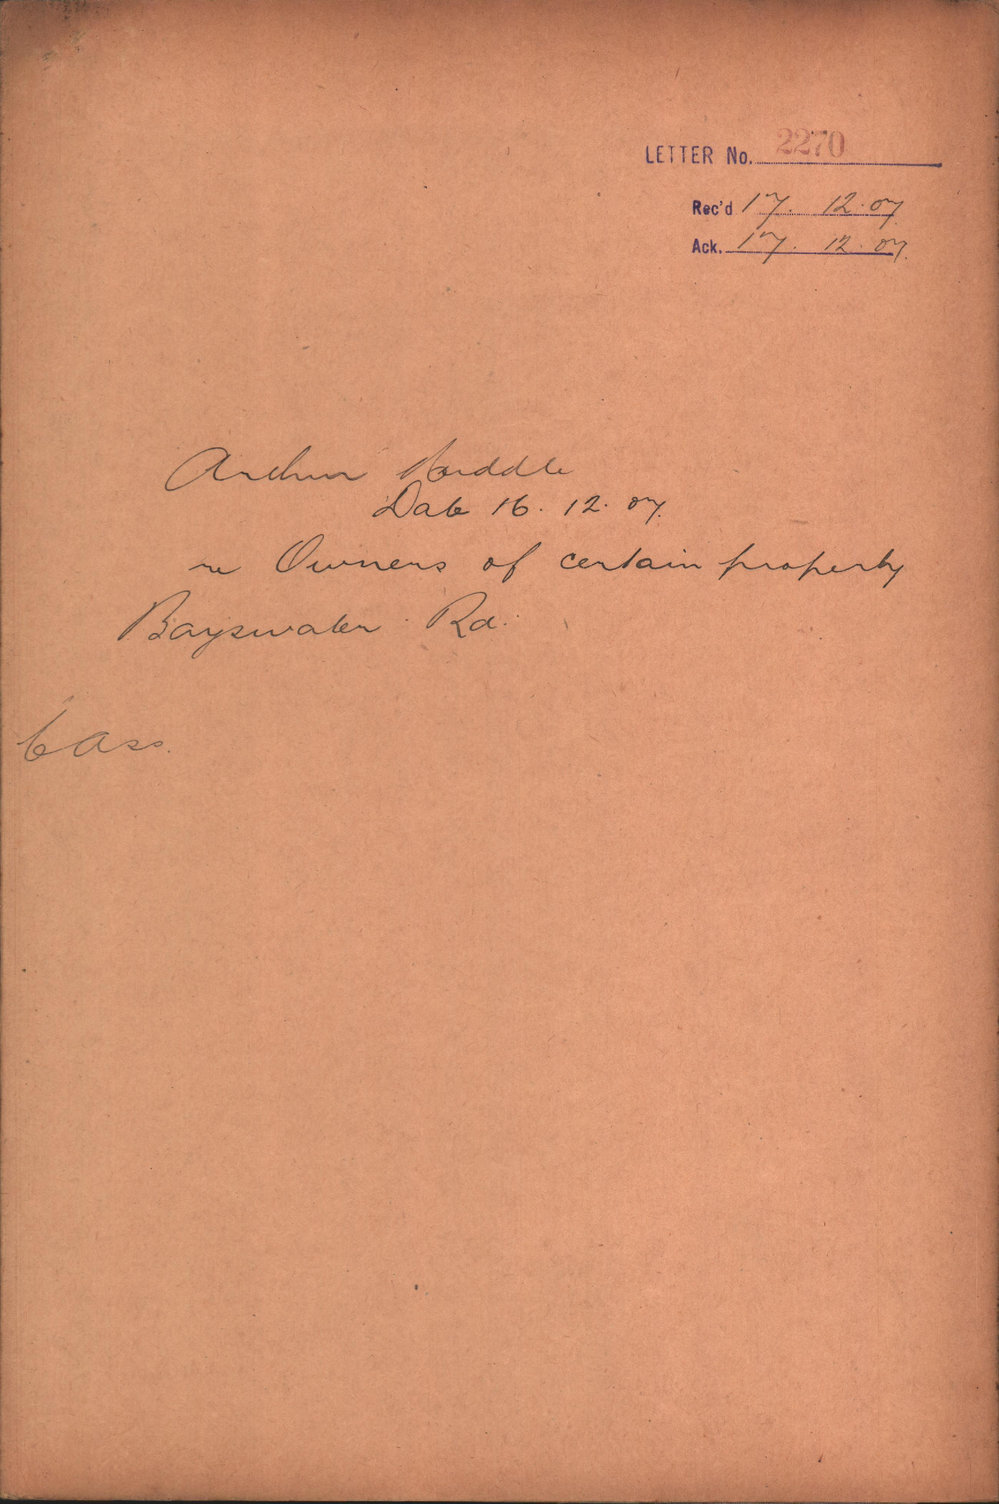 LETTER No. 2270
Rec'd 17. 12. 07
Ack. 17. 12. 07.
Arthur
Date 16. 12. 07.
re Owners of certain property
Bayswater Rd.